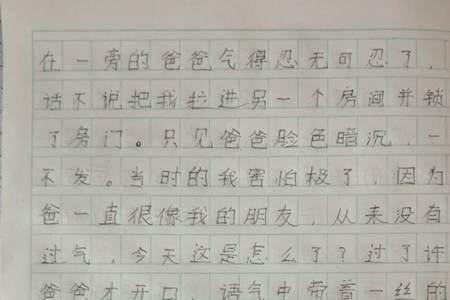 在一旁的爸爸气得忍无可忍了，
话不说把我拉进另一个房间并锁
了房门。只见爸爸脸色暗沉，一
不发。当时的我害怕极了，因为
爸一直很像我的朋友，从来没有
过气，今天这是怎么了？过了许
爸爸才开口，语气中带着一丝的